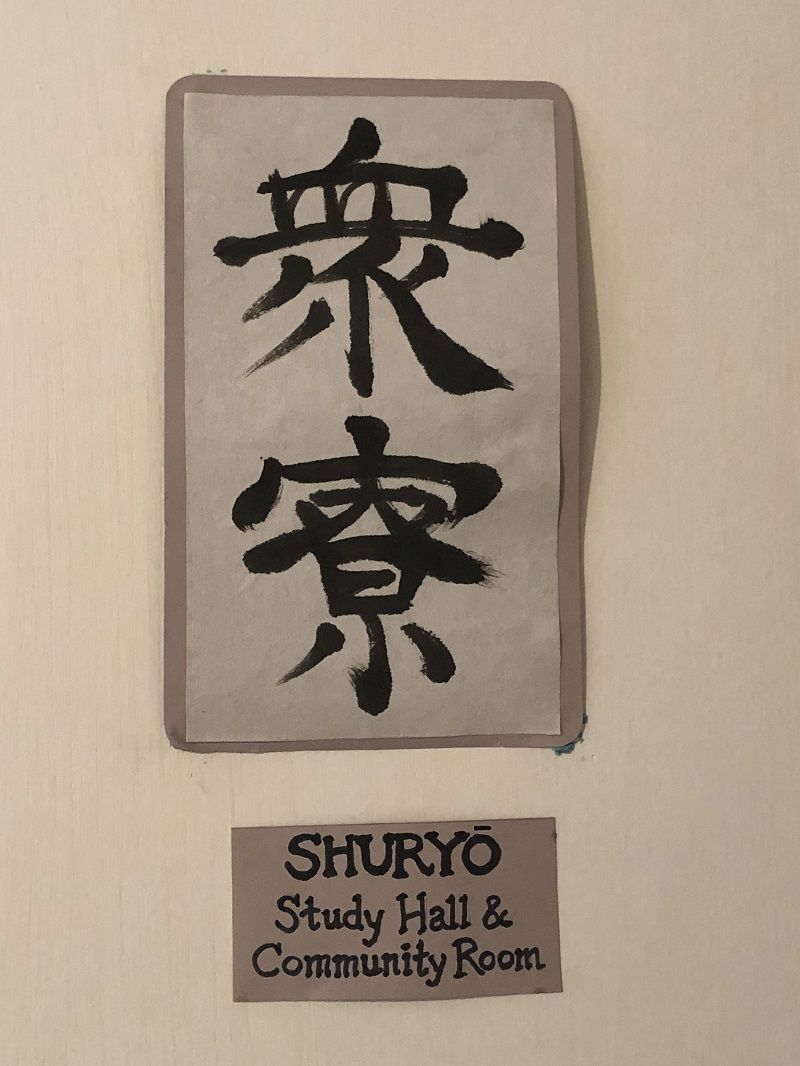 衆寮
SHURYŌ
Study Hall &
Community Room